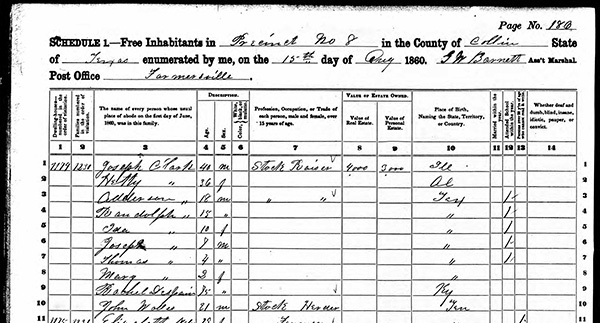 Page No. 180
SCHEDULE 1.—Free Inhabitants in Precinct No 8 in the County of Collin State
of Texas enumerated by me, on the 15th day of Aug 1860. Ass't Marshal.
Post Office Farmersville
The name of every person whose usual place of abode on the first day of June, 1860, was in this family.
DESCRIPTION.
Age.
Sex.
Profession, Occupation, or Trade of each person, male and female, over 15 years of age.
VALUE OF ESTATE OWNED.
Value of Real Estate.
Value of Personal Estate.
Place of Birth, Naming the State, Territory, or Country.
Married within the year.
Attended School within the year.
Whether deaf and dumb, blind, insane, idiotic, pauper, or convict.
1 2 3 4 5 6 7 8 9 10 11 12 13 14
1 Joseph Clark 40 m Stock Raiser 4000 3000 Ill
2 " 36 f Al
3 Adderson " 18 m " " Tex 1
4 Randolph " " " 1
5 Ida " 10 f " 1
6 Joseph " 7 m " 1
7 Thomas " 4 " " 1
8 Mary " 2 f "
9 Rachel " Ky
10 John 21 m Stock Herder Ten
11 Elizabeth